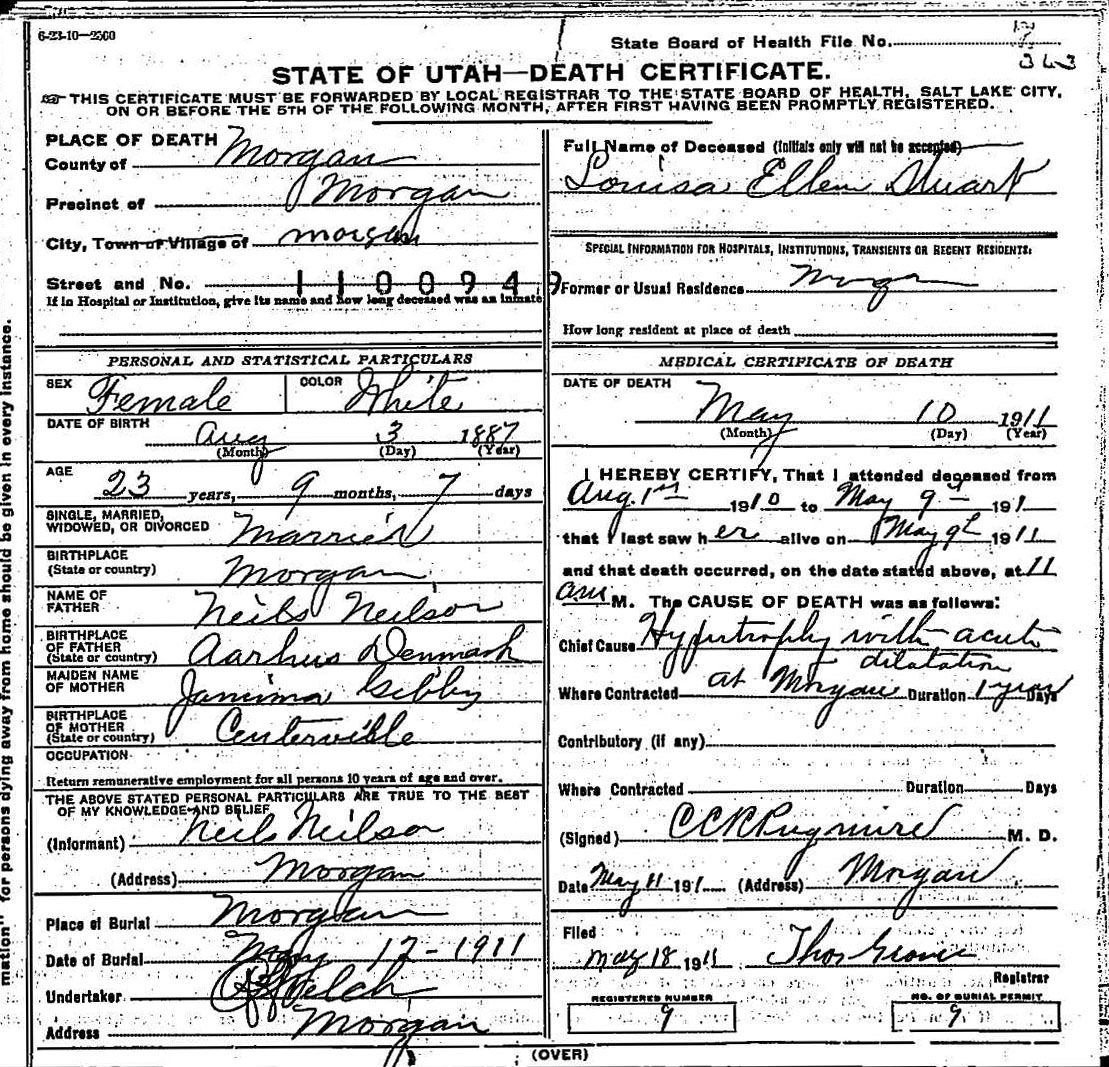 6-23-10-2500
State Board of Health File No. 7
343
STATE OF UTAH—DEATH CERTIFICATE.
THIS CERTIFICATE MUST BE FORWARDED BY LOCAL REGISTRAR TO THE STATE BOARD OF HEALTH, SALT LAKE CITY,
ON OR BEFORE THE 5TH OF THE FOLLOWING MONTH, AFTER FIRST HAVING BEEN PROMPTLY REGISTERED.
PLACE OF DEATH
County of Morgan
Precinct of Morgan
City, Town or Village of Morgan
Street and No. 1100949
If in Hospital or Institution, give its name and how long deceased was an inmate
Full Name of Deceased (Initials only will not be accepted)
Louisa Ellen Stuart
SPECIAL INFORMATION FOR HOSPITALS, INSTITUTIONS, TRANSIENTS OR RECENT RESIDENTS:
Former or Usual Residence Morgan
How long resident at place of death
PERSONAL AND STATISTICAL PARTICULARS
SEX Female COLOR White
DATE OF BIRTH Aug 3 1887
(Month) (Day) (Year)
AGE
23 years, 9 months, 7 days
SINGLE, MARRIED,
WIDOWED, OR DIVORCED Married
BIRTHPLACE
(State or country) Morgan
NAME OF
FATHER Neils Neilson
BIRTHPLACE
OF FATHER
(State or country) Aarhus Denmark
MAIDEN NAME
OF MOTHER Jamima Gibby
BIRTHPLACE
OF MOTHER
(State or country) Centerville
OCCUPATION
Return remunerative employment for all persons 10 years of age and over.
THE ABOVE STATED PERSONAL PARTICULARS ARE TRUE TO THE BEST
OF MY KNOWLEDGE AND BELIEF
(Informant) Neils Neilson
(Address) Morgan
Place of Burial Morgan
Date of Burial May 12-1911
Undertaker Welch
Address Morgan
MEDICAL CERTIFICATE OF DEATH
DATE OF DEATH
May 10 1911
(Month) (Day) (Year)
I HEREBY CERTIFY, That I attended deceased from
Aug. 1st 1910 to May 9th 1911
that I last saw her alive on May 9th 1911
and that death occurred, on the date stated above, at 11
am M. The CAUSE OF DEATH was as follows:
Chief Cause Hypertrophy with acute
dilatation
Where Contracted at Morgan Duration 1 year Days
Contributory (if any)
Where Contracted Duration Days
(Signed) CCR Pugmire M. D.
Date May 11 191 (Address) Morgan
Filed
May 18 1911 Thos Grover
Registrar
REGISTERED NUMBER
9
NO. OF BURIAL PERMIT
9
(OVER)
mation" for persons dying away from home should be given in every instance.